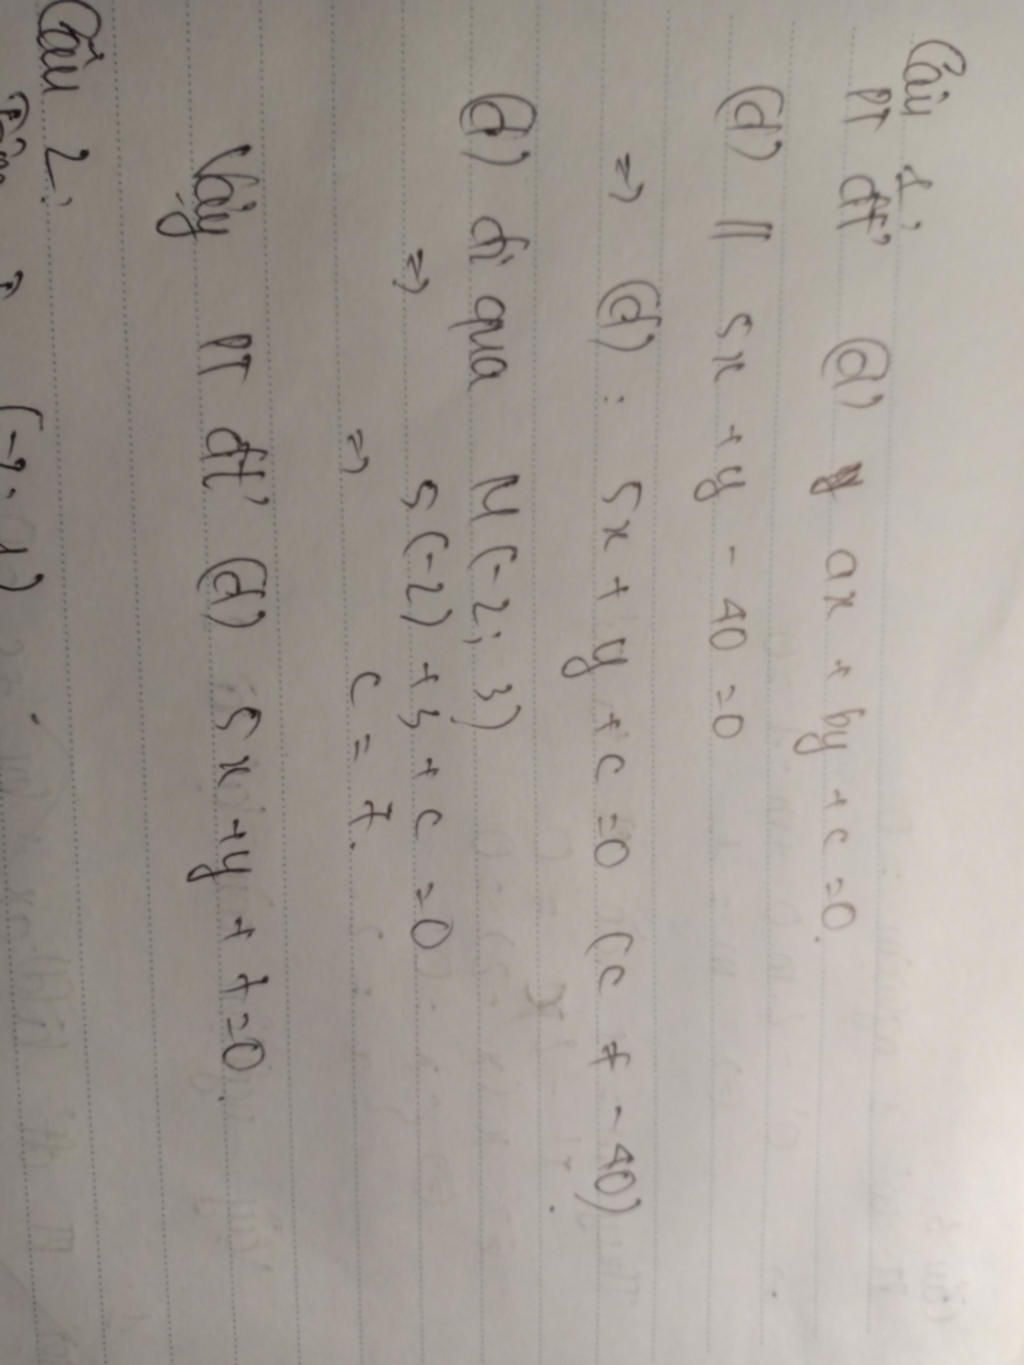 Câu 1:
PT đt' (d) ax + by + c = 0.
(d) // 5x + y - 40 = 0
=> (d) : 5x + y + c = 0 (c ≠ -40)
(d) đi qua M(-2; 3)
=> 5(-2) + 3 + c = 0
=> c = 7.
Vậy PT đt' (d) 5x + y + 7 = 0.
Câu 2: